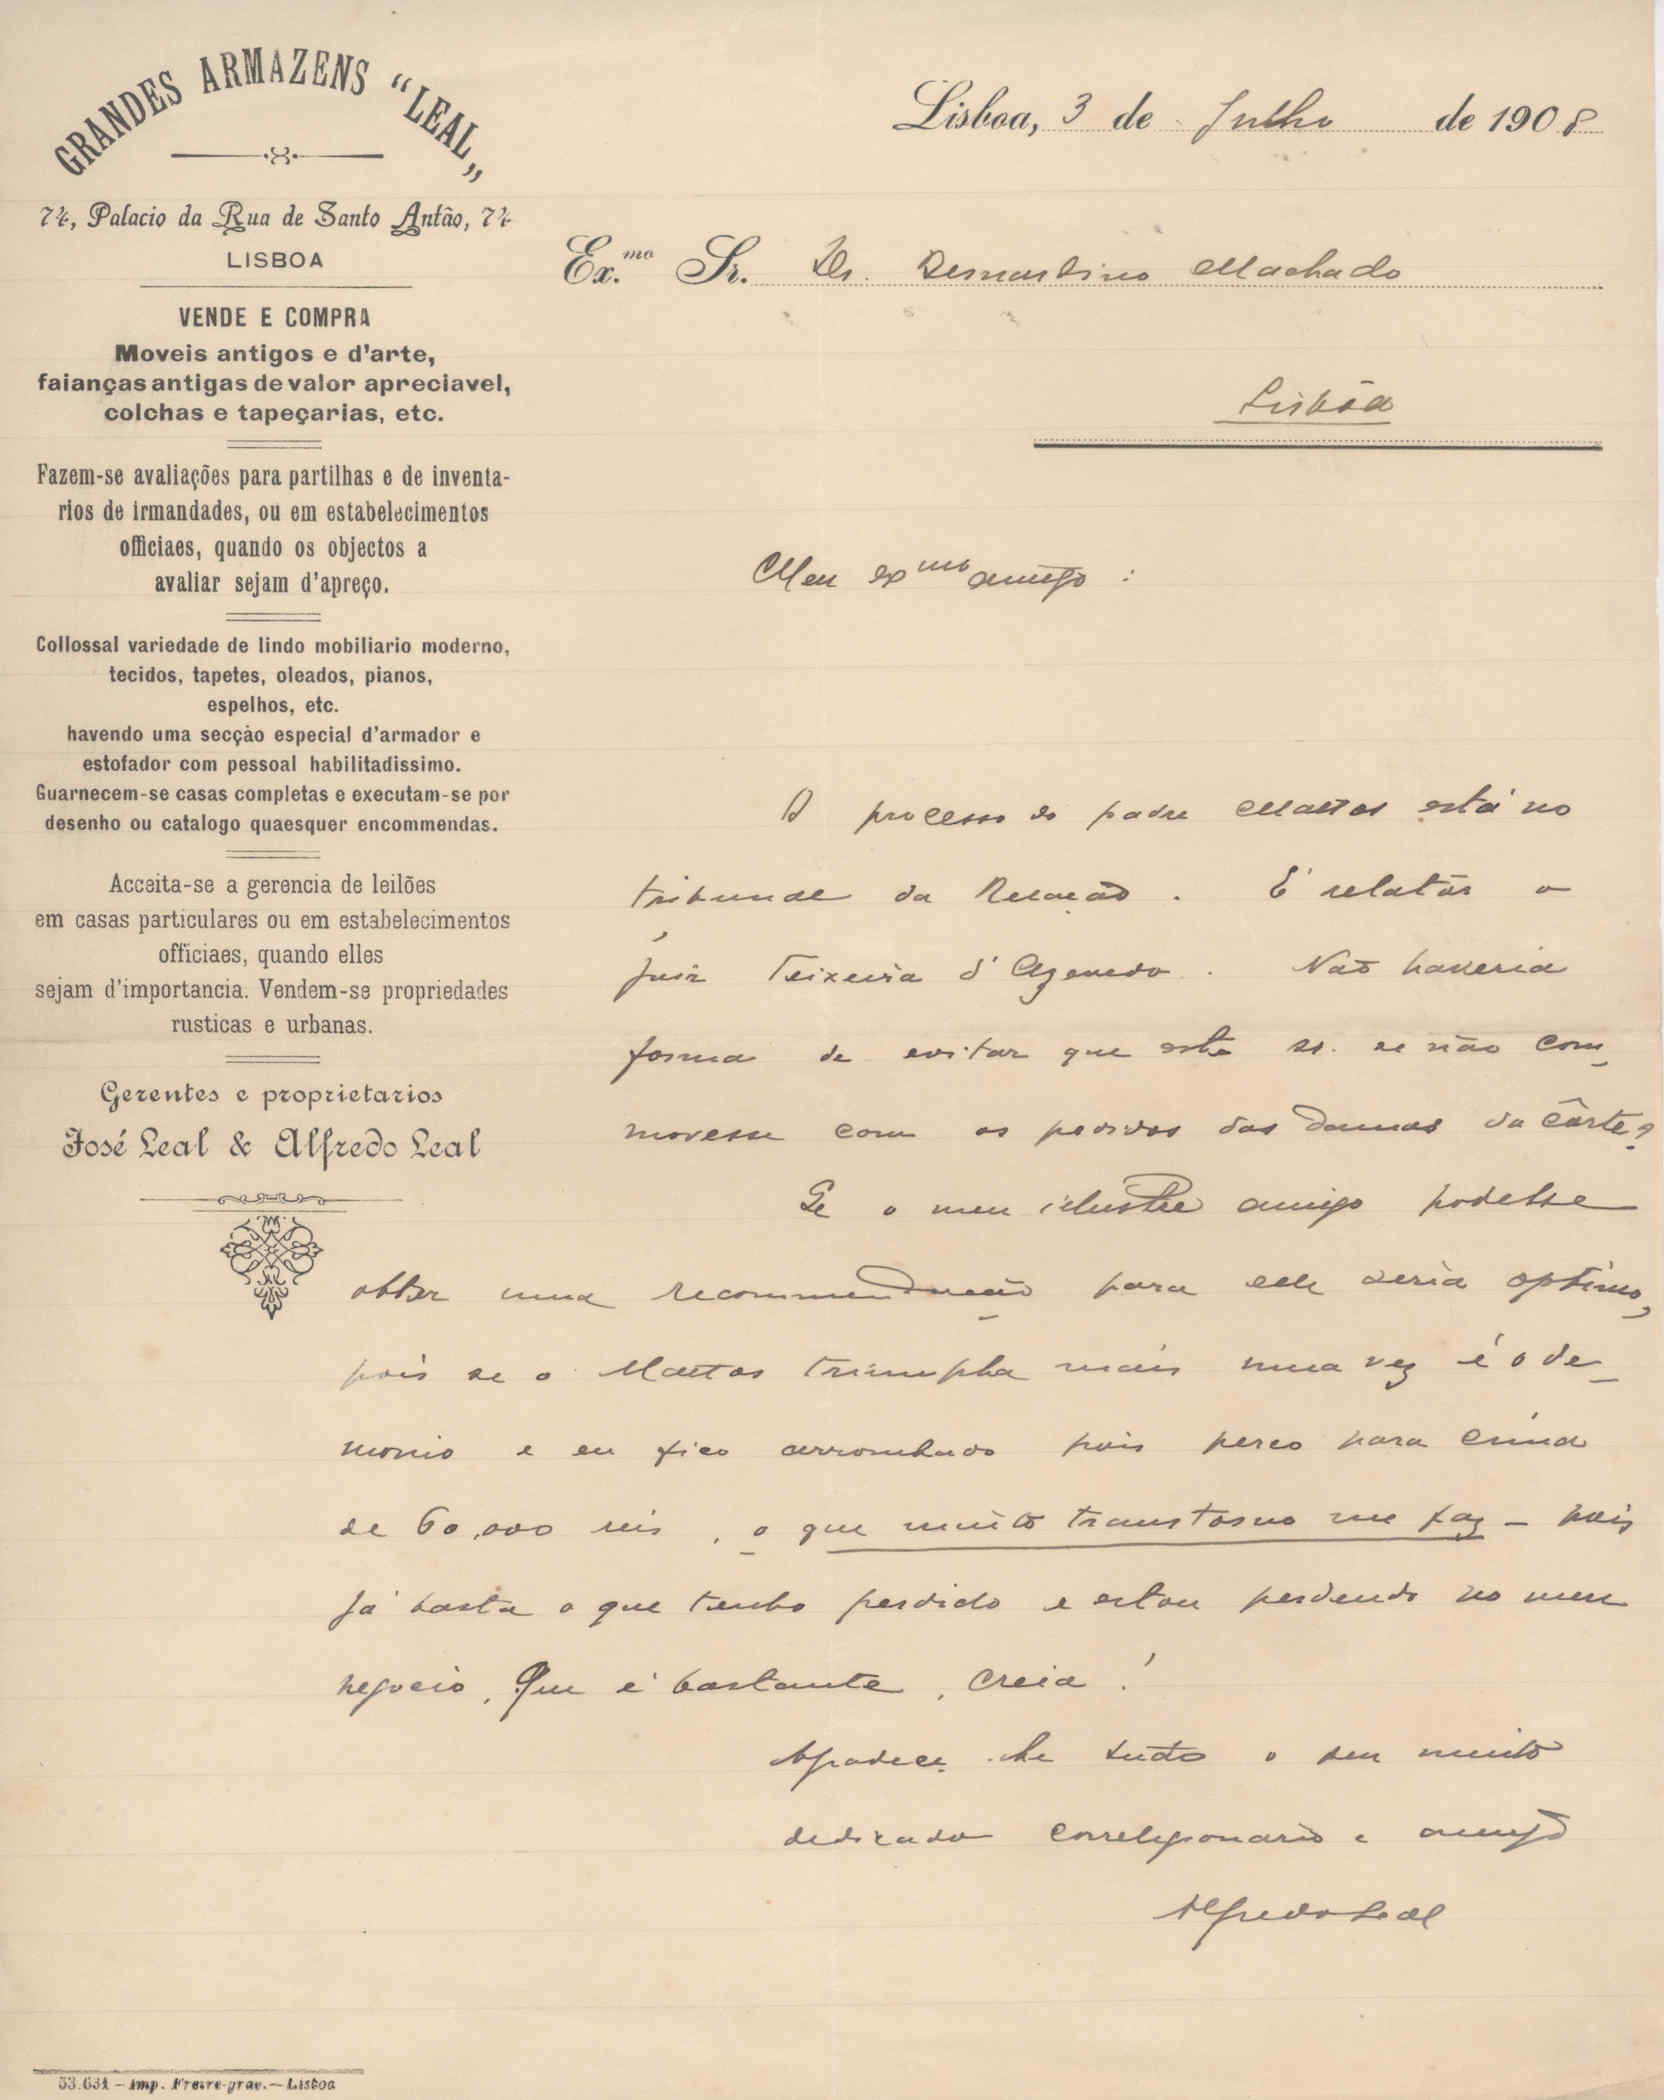 GRANDES ARMAZENS "LEAL„
74, Palacio da Rua de Santo Antão, 74
LISBOA
VENDE E COMPRA
Moveis antigos e d'arte,
faianças antigas de valor apreciavel,
colchas e tapeçarias, etc.
Fazem-se avaliações para partilhas e de inventa-
rios de irmandades, ou em estabelecimentos
officiaes, quando os objectos a
avaliar sejam d'apreço.
Collossal variedade de lindo mobiliario moderno,
tecidos, tapetes, oleados, pianos,
espelhos, etc.
havendo uma secção especial d'armador e
estofador com pessoal habilitadissimo.
Guarnecem-se casas completas e executam-se por
desenho ou catalogo quaesquer encommendas.
Acceita-se a gerencia de leilões
em casas particulares ou em estabelecimentos
officiaes, quando elles
sejam d'importancia. Vendem-se propriedades
rusticas e urbanas.
Gerentes e proprietarios
José Leal & Alfredo Leal
Lisboa, 3 de Julho de 1908
Ex.mo Sr. Dr. Bernardino Machado
Lisbôa
Meu exmo amigo:
O processo do padre Mattos está no
tribunal da Relação. É relatôr o
juiz Teixeira d'Azevedo. Não haveria
forma de evitar que este sr. se não com-
movesse com os pedidos das Damas da côrte?
Se o meu illustre amigo podesse
obter uma recommendação para elle seria optimo,
pois se o Mattos triumpha mais uma vez é o de-
monio e eu fico arrombado pois perco para cima
de 60.000 reis, o que muito transtorno me faz - pois
já basta o que tenho perdido e estou perdendo no meu
negocio. Que é bastante, creia!
Agradece-lhe tudo o seu muito
dedicado correligionario e amigo
Alfredo Leal
53.631 - Imp. Freire-grav. - Lisboa